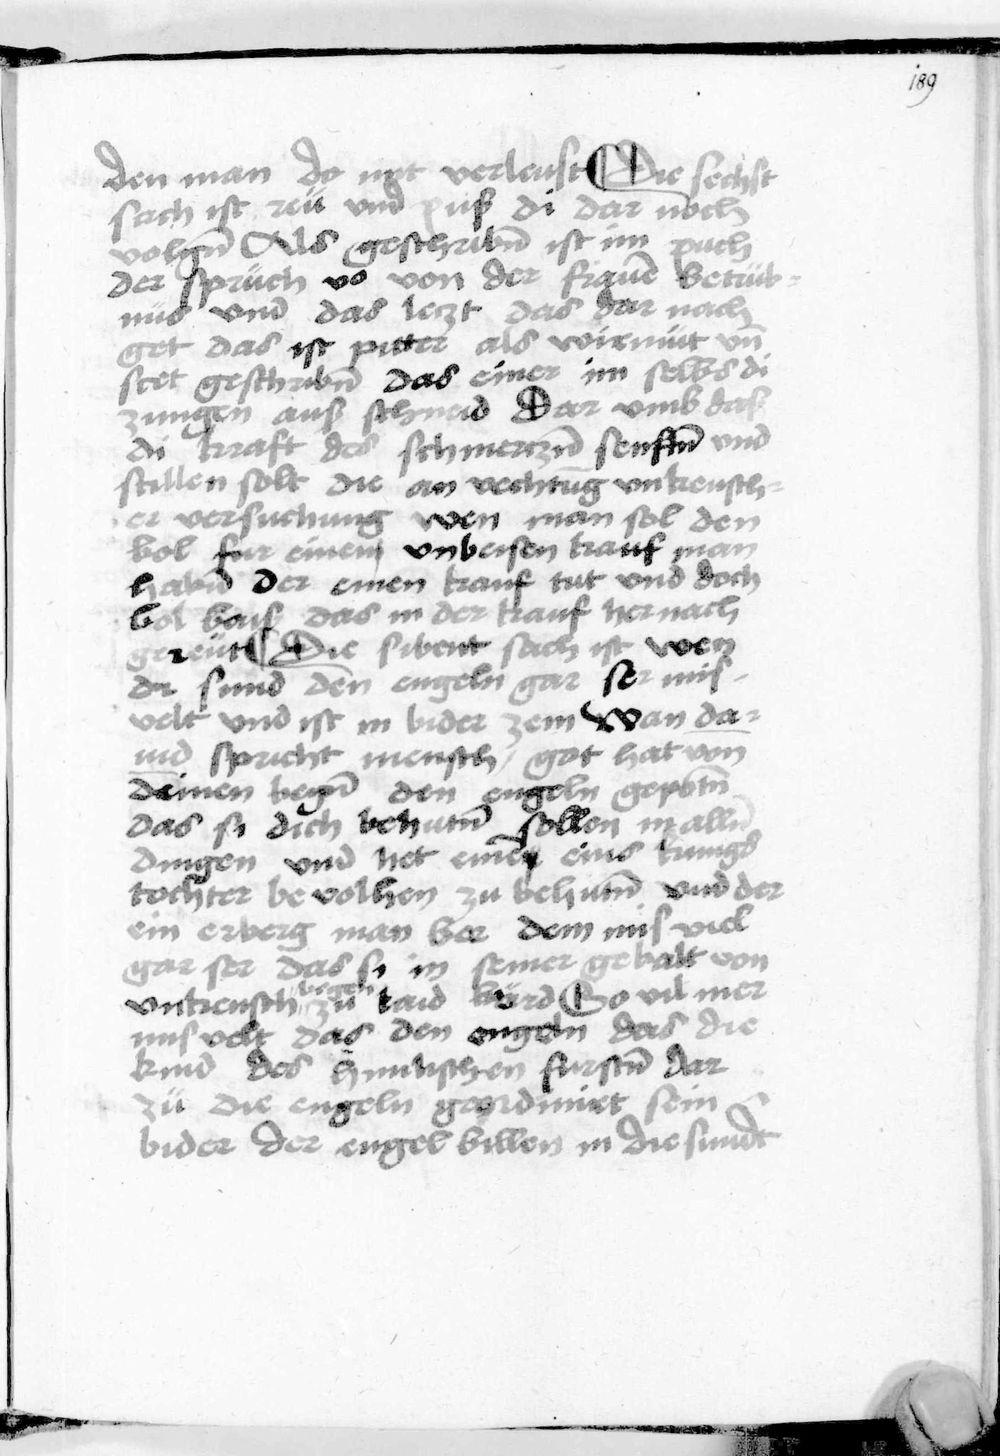 189
den man do mit verleust Die sechst
sach ist reü vnd puß di dar noch
volgn̄ Als geschribn̄ ist im puch
der sprüch vo von der frauē betrüb-
nüs vnd das leczt das dar nach
get das ist pitter als wirmüt vn̄
stet geschribn̄ das einer im selbs di
zungen auß schneid Dar vmb das
di kraft des schmerczn̄ senftn̄ vnd
stillen solt die an vechtūg vnkeusch-
er versuchung wen man sol den
bol fur einem vnbeisen kauf man
habn̄ der einen kauf tut vnd doch
bol bais das in der kauf her nach
gereüt Die sibent sach ist wen
di sund den engeln gar ser mis-
velt vnd ist in bider zem Wan da-
uid spricht mensch got hat von
deinen begn̄ den engeln gepotn̄
das si dich behutn̄ sollen in alln̄
dingen vnd het einer eins kunigs
tochter be volhen zu behutn̄ vnd der
ein erberg man ber dem mis viel
gar ser das si in seiner gebalt von
vnkeusch begen zü laid kürd So vil mer
mis velt das den engeln das die
kind des himlischen furstn̄ dar
zü die engeln geordinirt sein
bider der engel billen in die sundt